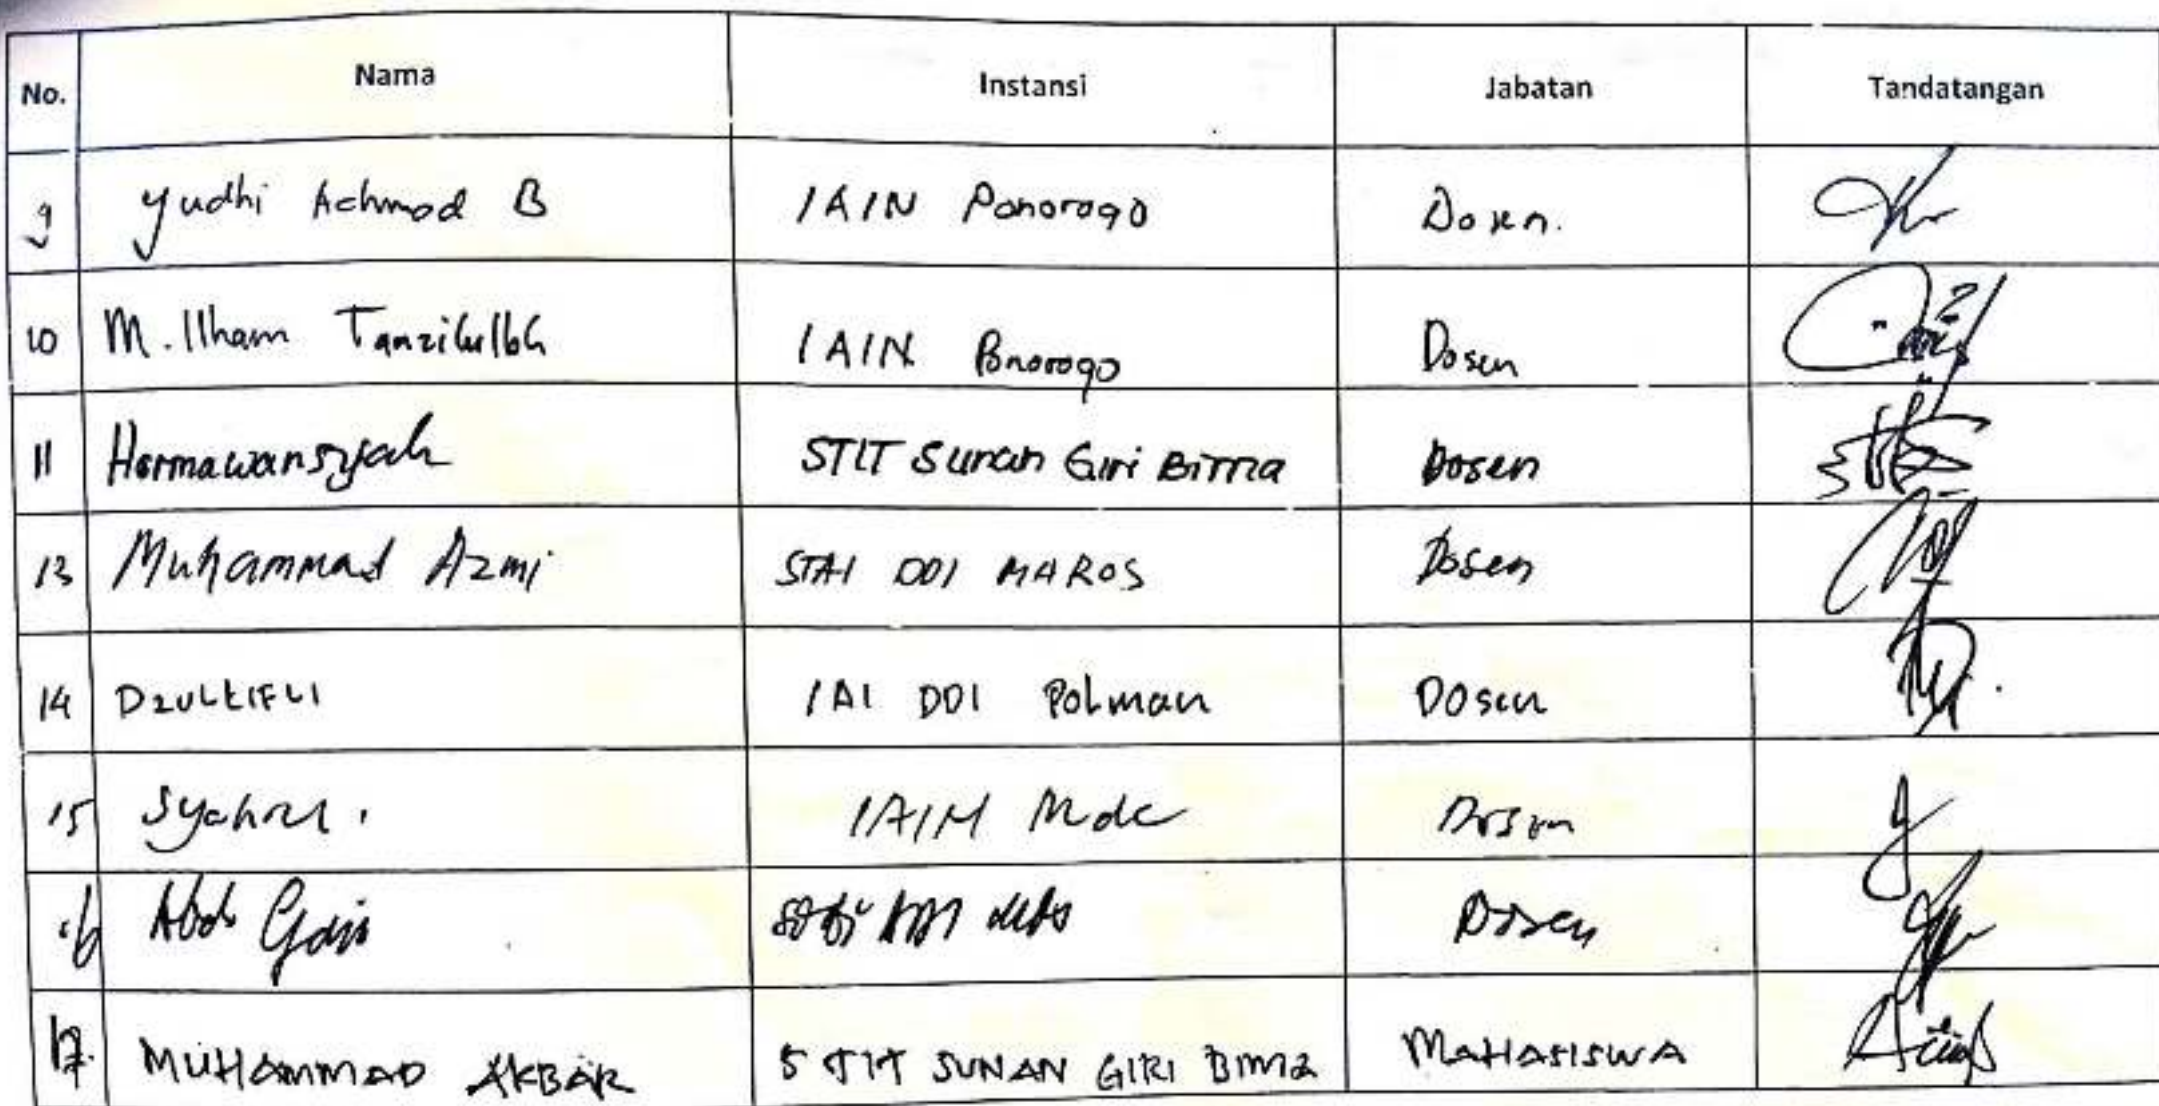 No. Nama Instansi Jabatan Tandatangan
9 Yudhi Achmad B IAIN Ponorogo Dosen.
10 M. Ilham Tanzilullah IAIN Ponorogo Dosen
11 Hermawansyah STIT Sunan Giri Bima Dosen
13 Muhammad Azmi STAI DDI MAROS Dosen
14 DZULKIFLI IAI DDI Polman Dosen
15 Syahrul. IAIM Dosen
16 Abd. Dosen
17. MUHAMMAD AKBAR STIT SUNAN GIRI BIMA MAHASISWA